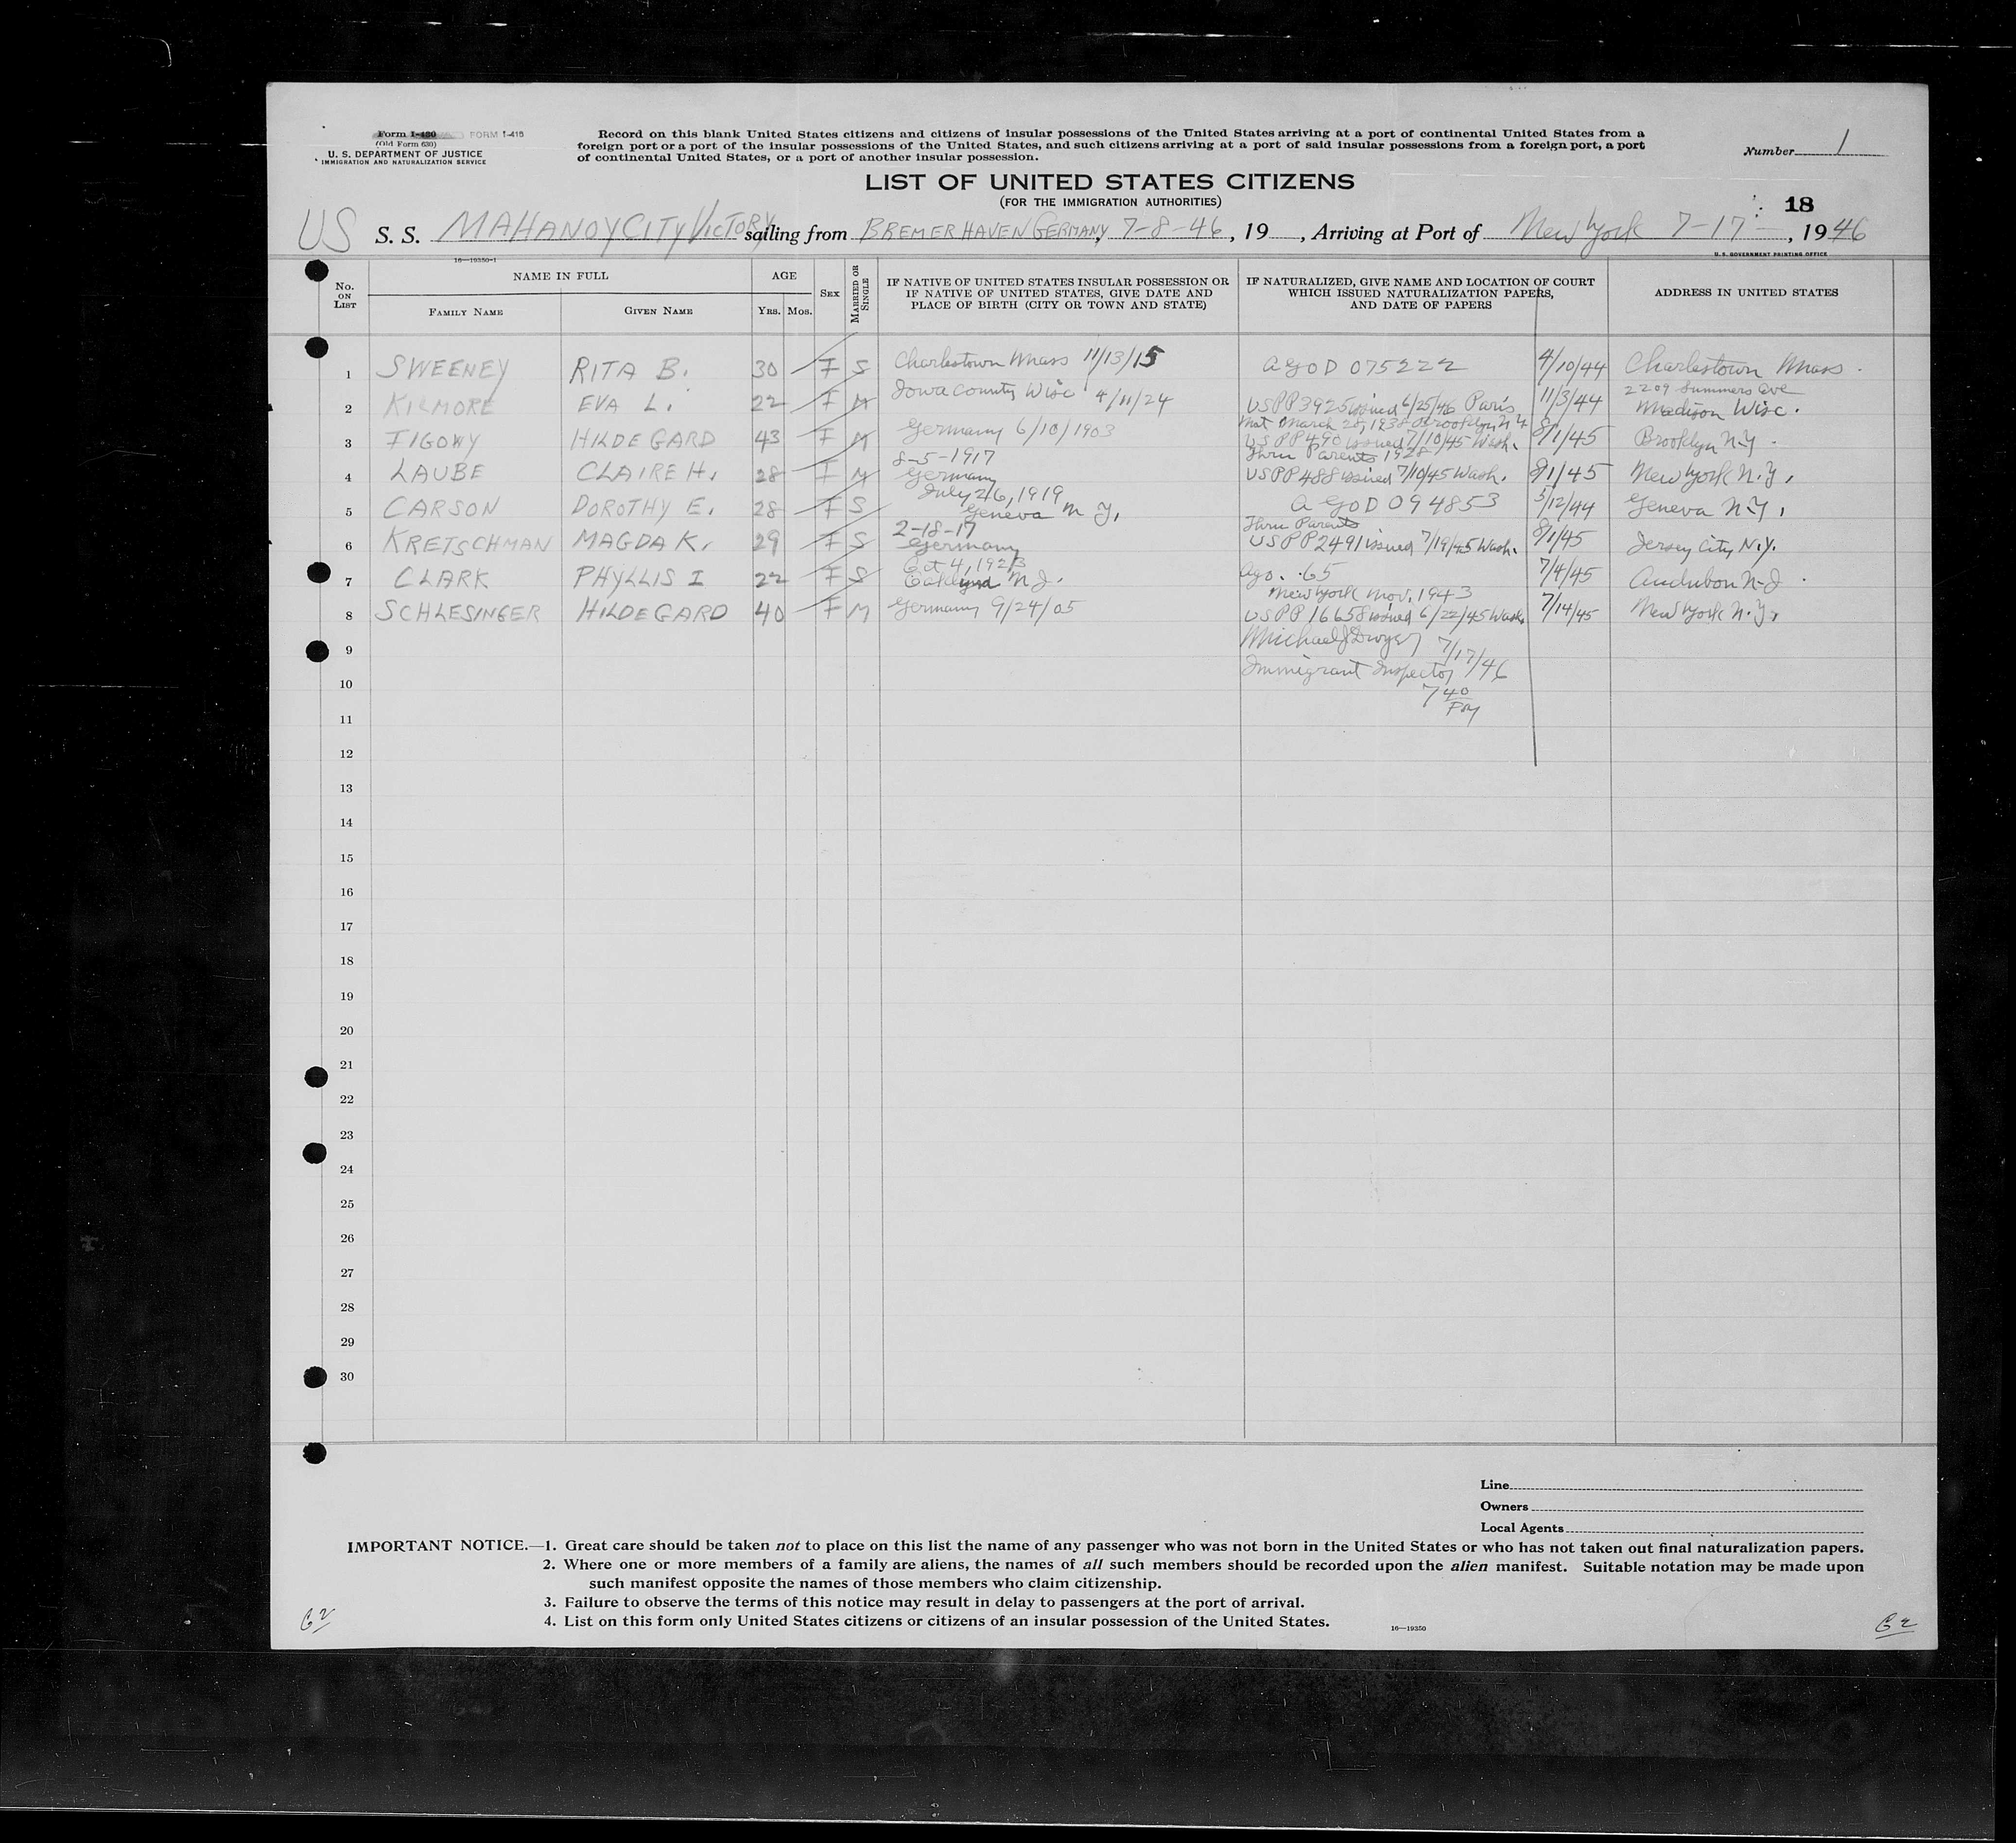 Form I-430 FORM I-418
(Old Form 630)
U. S. DEPARTMENT OF JUSTICE
IMMIGRATION AND NATURALIZATION SERVICE
Record on this blank United States citizens and citizens of insular possessions of the United States arriving at a port of continental United States from a
foreign port or a port of the insular possessions of the United States, and such citizens arriving at a port of said insular possessions from a foreign port, a port
of continental United States, or a port of another insular possession.
Number 1
LIST OF UNITED STATES CITIZENS
(FOR THE IMMIGRATION AUTHORITIES)
18
US S. S. MAHANOY CITY VICTORY sailing from BREMERHAVEN GERMANY, 7-8-46, 19 , Arriving at Port of New York 7-17-, 1946
16—19350-1
U. S. GOVERNMENT PRINTING OFFICE
No. ON LIST
NAME IN FULL
FAMILY NAME
GIVEN NAME
AGE
YRS. MOS.
SEX
MARRIED OR SINGLE
IF NATIVE OF UNITED STATES INSULAR POSSESSION OR
IF NATIVE OF UNITED STATES, GIVE DATE AND
PLACE OF BIRTH (CITY OR TOWN AND STATE)
IF NATURALIZED, GIVE NAME AND LOCATION OF COURT
WHICH ISSUED NATURALIZATION PAPERS,
AND DATE OF PAPERS
ADDRESS IN UNITED STATES
1 SWEENEY RITA B. 30 F S Charlestown Mass 11/13/15 AGO D 075222 4/10/44 Charlestown Mass.
2209 Summers Ave
2 KILMORE EVA L. 22 F M Iowa County Wisc 4/11/24 USPP3925 issued 6/25/46 Paris 11/3/44 Madison Wisc.
Nat March 28, 1938 Brooklyn N Y
3 FIGOWY HILDEGARD 43 F M Germany 6/10/1903 USPP490 issued 7/10/45 Wash. 8/1/45 Brooklyn N.Y.
8-5-1917 Thru Parents 1928
4 LAUBE CLAIRE H. 28 F M Germany USPP488 issued 7/10/45 Wash. 8/1/45 New York N.Y.
July 26, 1919
5 CARSON DOROTHY E. 28 F S Geneva N.Y. AGO D 094853 5/12/44 Geneva N.Y.
2-18-17 Thru Parents
6 KRETSCHMAN MAGDA K. 29 F S Germany USPP2491 issued 7/19/45 Wash. 8/1/45 Jersey City N.Y.
Oct 4, 1923
7 CLARK PHYLLIS I 22 F S Oaklynd N J. Ago. .65 7/4/45 Audubon N-J.
New York Nov. 1943
8 SCHLESINGER HILDEGARD 40 F M Germany 9/24/05 USPP 16658 issued 6/22/45 Wash. 7/14/45 New York N.Y.
9 Michael J Dwyer 7/17/46
Immigrant Inspector
10 7 40 Pm
11
12
13
14
15
16
17
18
19
20
21
22
23
24
25
26
27
28
29
30
Line
Owners
Local Agents
IMPORTANT NOTICE.—1. Great care should be taken not to place on this list the name of any passenger who was not born in the United States or who has not taken out final naturalization papers.
2. Where one or more members of a family are aliens, the names of all such members should be recorded upon the alien manifest. Suitable notation may be made upon
such manifest opposite the names of those members who claim citizenship.
3. Failure to observe the terms of this notice may result in delay to passengers at the port of arrival.
4. List on this form only United States citizens or citizens of an insular possession of the United States.
16—19350